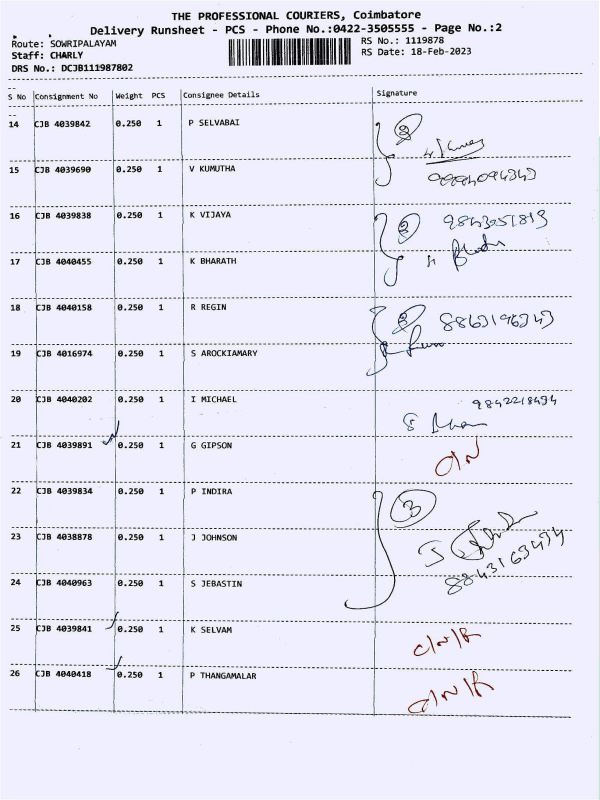 THE PROFESSIONAL COURIERS, Coimbatore
Delivery Runsheet - PCS - Phone No.:0422-3505555 - Page No.:2
Route: SOWRIPALAYAM RS No.: 1119878
Staff: CHARLY RS Date: 18-Feb-2023
DRS No.: DCJB111987802
S No Consignment No Weight PCS Consignee Details Signature
14 CJB 4039842 0.250 1 P SELVABAI 2
15 CJB 4039690 0.250 1 V KUMUTHA
16 CJB 4039838 0.250 1 K VIJAYA 2 9843251813
17 CJB 4040455 0.250 1 K BHARATH
18 CJB 4040158 0.250 1 R REGIN 2 8863196343
19 CJB 4016974 0.250 1 S AROCKIAMARY
20 CJB 4040202 0.250 1 I MICHAEL 9842218494
21 CJB 4039891 0.250 1 G GIPSON
22 CJB 4039834 0.250 1 P INDIRA 3
23 CJB 4038878 0.250 1 J JOHNSON 8843163434
24 CJB 4040963 0.250 1 S JEBASTIN
25 CJB 4039841 0.250 1 K SELVAM C/N/R
26 CJB 4040418 0.250 1 P THANGAMALAR C/N/R